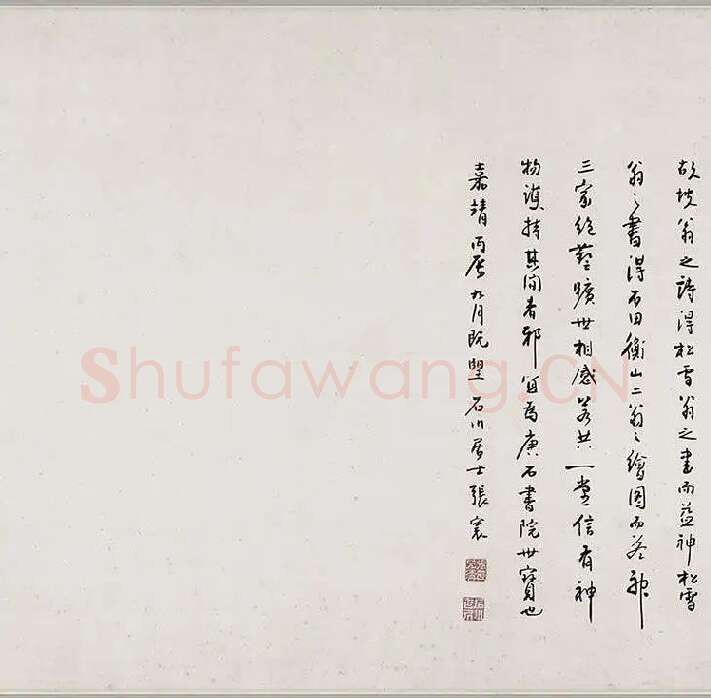 故坡翁之詩得松雪翁之書而益神松雪
翁之書得石田衡山二翁之繪圖而益神
三家絶藝曠世相感若共一堂信有神
物護持其間者邪宜為庚石書院世寶也
嘉靖丙辰九月既望石川居士張寰
Shufawang.CN